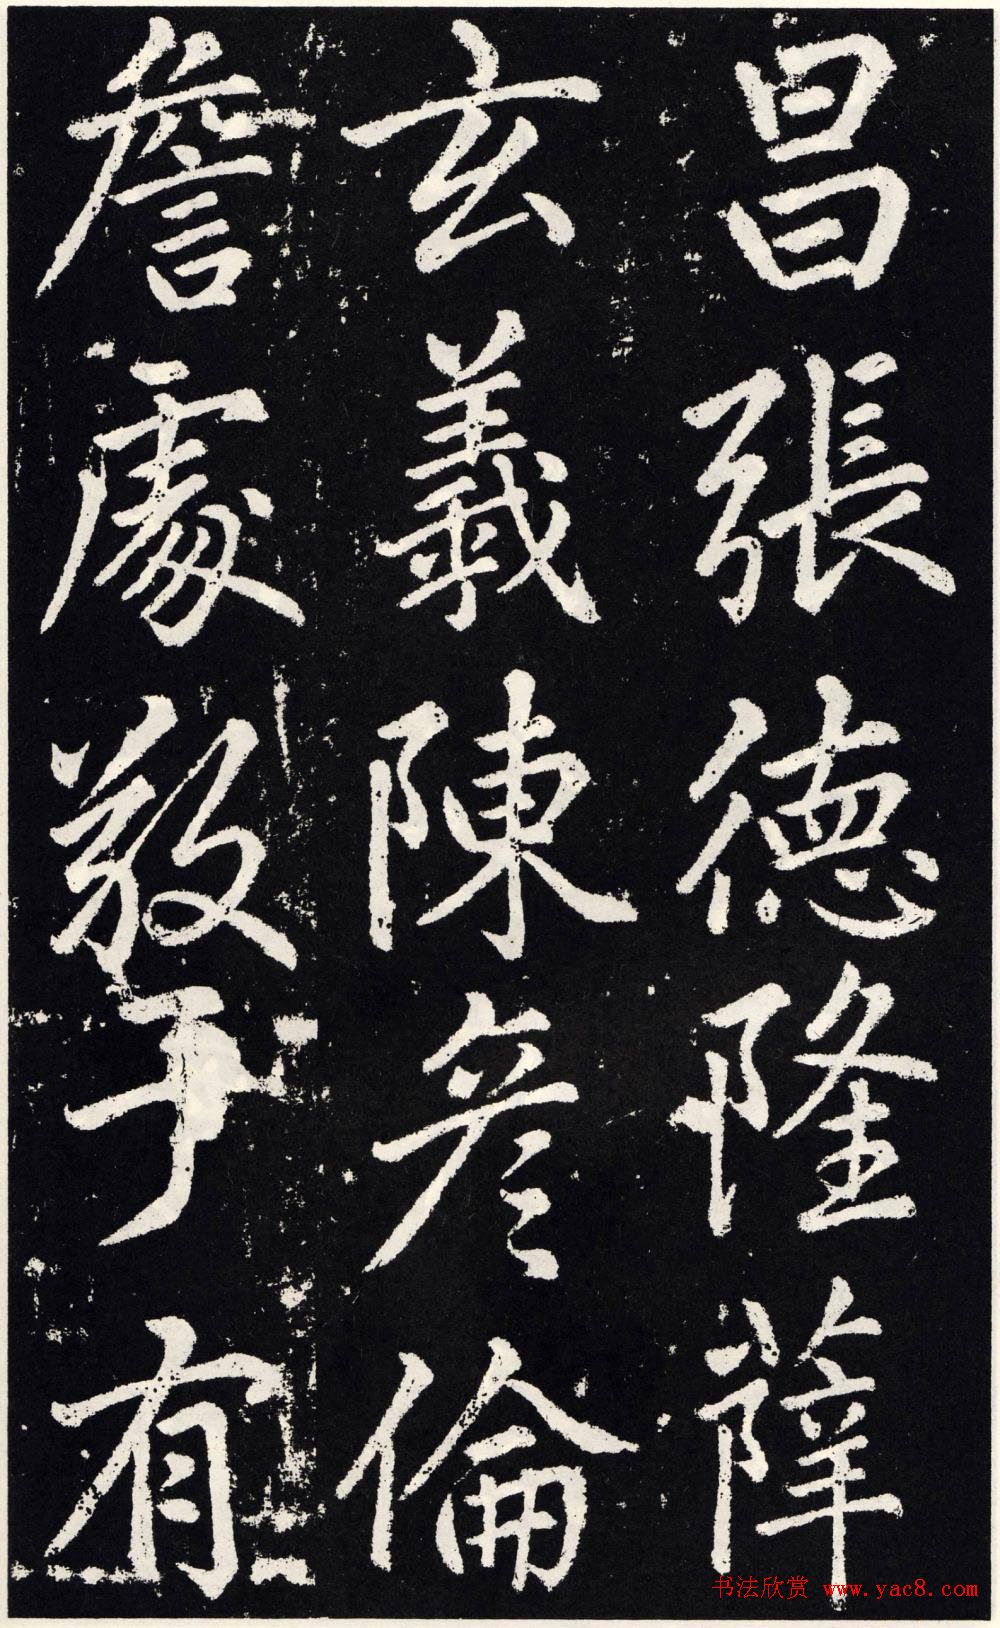 昌張德隆薛
玄義陳彦倫
詹處敬于有
书法欣赏 www.yac8.com